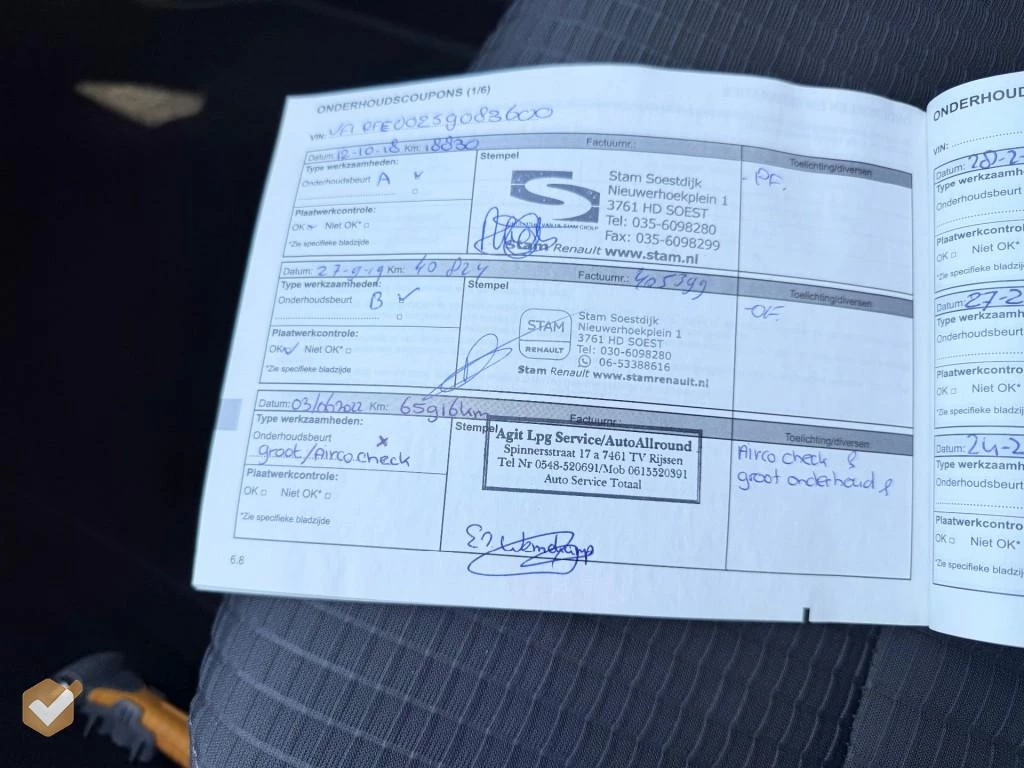 ONDERHOUDSCOUPONS (1/6)
VIN:
Datum: 12-10-18 Km: 18830 Factuurnr.:
Type werkzaamheden:
Onderhoudsbeurt A
Plaatwerkcontrole:
OK Niet OK*
*Zie specifieke bladzijde
Stempel
Stam Soestdijk
Nieuwerhoekplein 1
3761 HD SOEST
Tel: 035-6098280
Fax: 035-6098299
Stam Renault www.stam.nl
Toelichting/diversen
- PF.
Datum: 27-9-19 Km: 40 824 Factuurnr.: 405399
Type werkzaamheden:
Onderhoudsbeurt B
Plaatwerkcontrole:
OK Niet OK*
*Zie specifieke bladzijde
Stempel
STAM
RENAULT
Stam Soestdijk
Nieuwerhoekplein 1
3761 HD SOEST
Tel: 030-6098280
06-53388616
Stam Renault www.stamrenault.nl
Toelichting/diversen
-OF.
Datum: 03/06/2022 Km: 65916km Factuurnr.:
Type werkzaamheden:
Onderhoudsbeurt x
groot/Airco.check
Plaatwerkcontrole:
OK Niet OK*
*Zie specifieke bladzijde
Stempel
Agit Lpg Service/AutoAllround
Spinnersstraat 17 a 7461 TV Rijssen
Tel Nr 0548-520691/Mob 0613520391
Auto Service Totaal
Toelichting/diversen
Airco check &
groot onderhoud
6.8
ONDERHOUD
VIN:
Datum: 28-2
Type werkzaam
Onderhoudsbeurt
Plaatwerkcontro
Niet OK*
*Zie specifieke bladzi
Datum: 27-2
Type werkzaamhe
Onderhoudsbeurt
Plaatwerkcontro
OK Niet OK*
*Zie specifieke bladzi
Datum: 24-2
Type werkzaamhe
Onderhoudsbeurt
Plaatwerkcontro
OK Niet OK*
*Zie specifieke bladzij